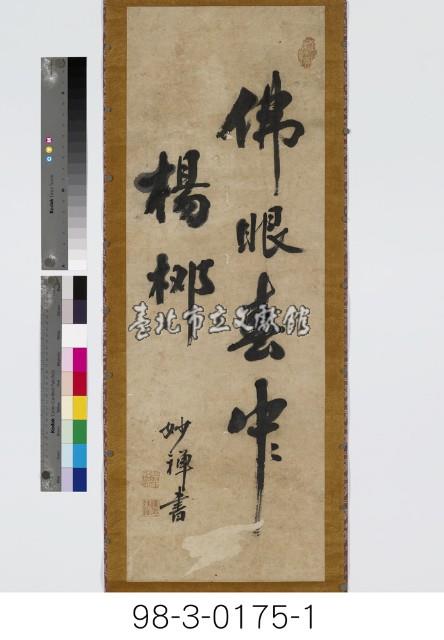 佛眼春中
楊柳
妙禪書
臺北市立文獻館
98-3-0175-1